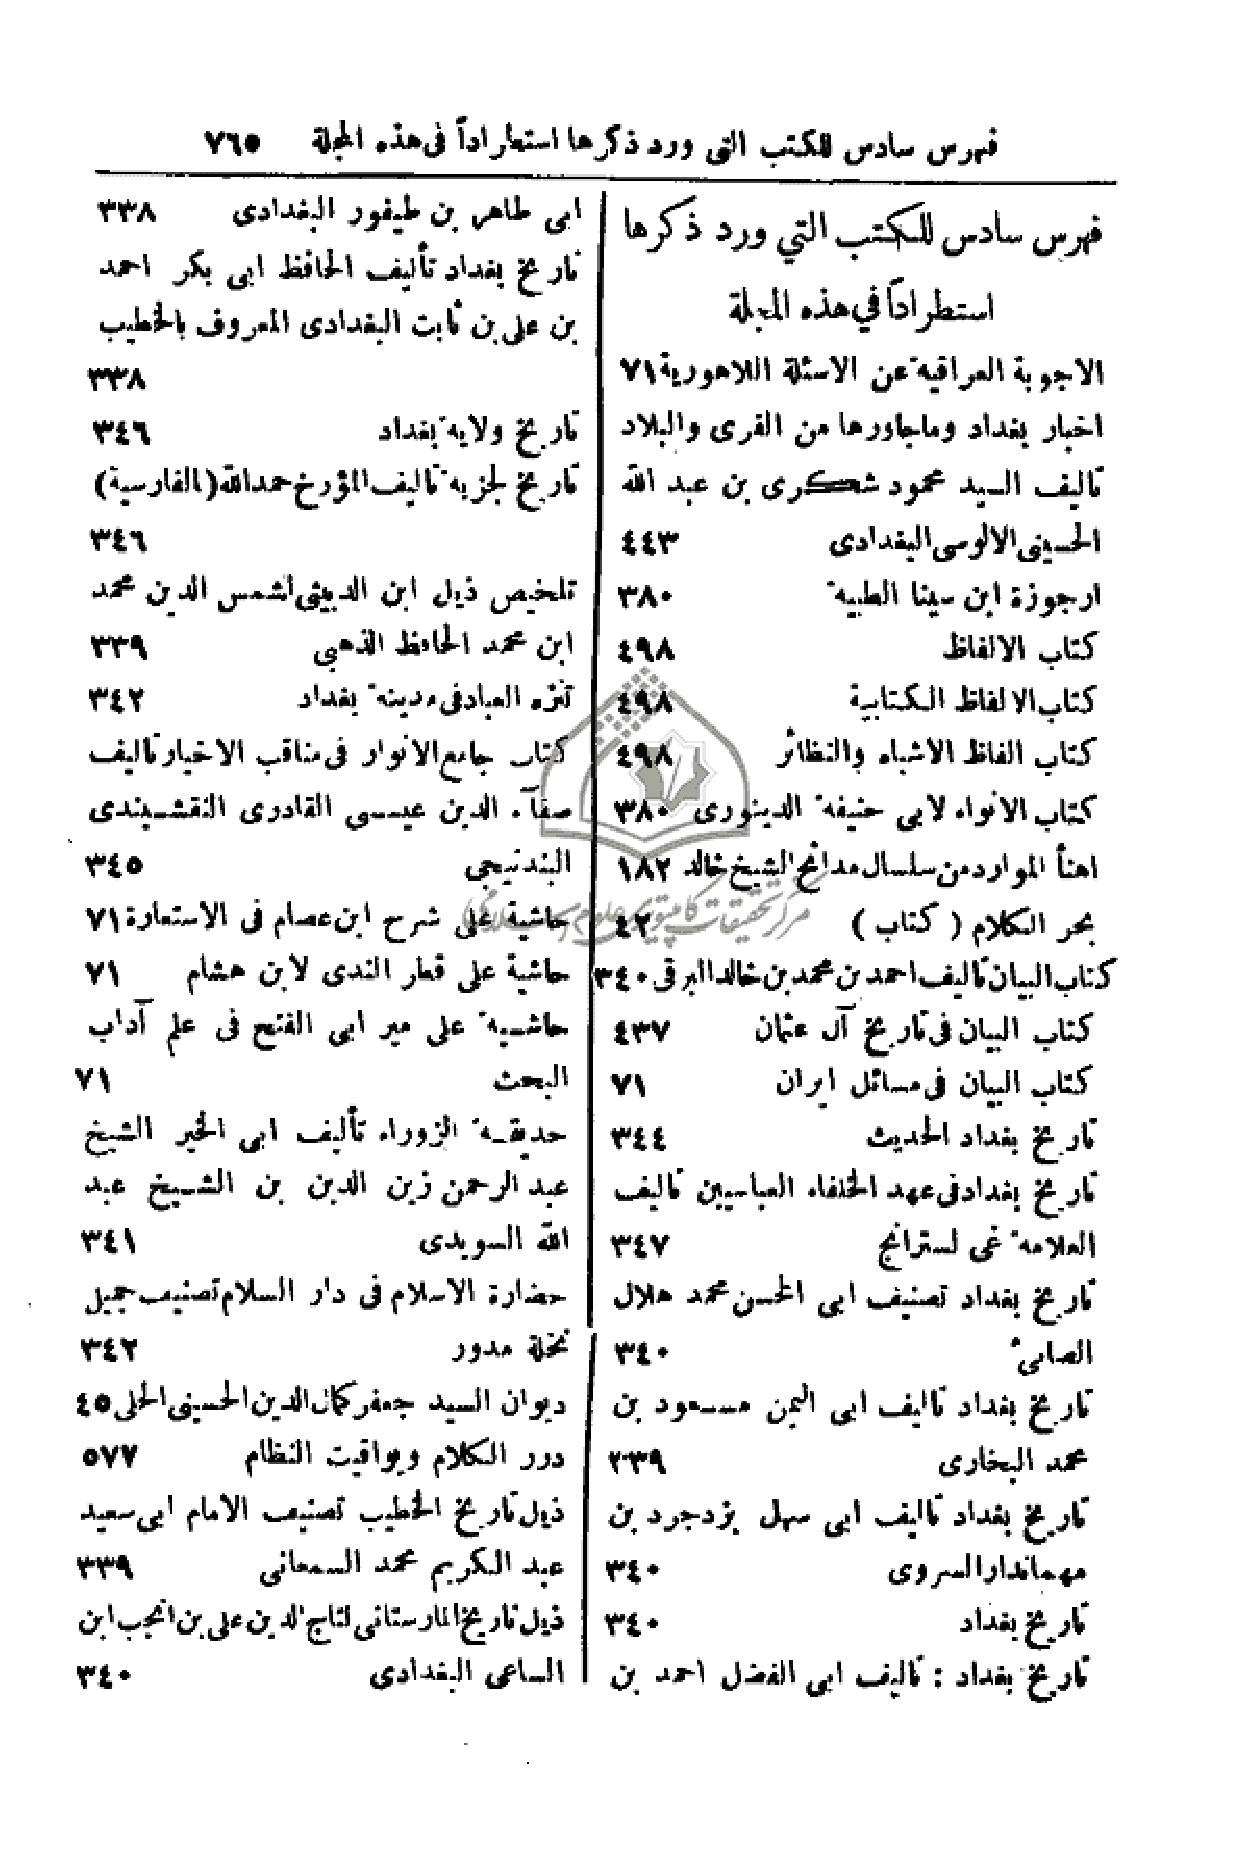 فهرس سادس للكتب التي ورد ذكرها استطراداً في هذه المجلة ٧٦٥
فهرس سادس للكتب التي ورد ذكرها
استطراداً في هذه المجلة
الاجوبة العراقية عن الاسئلة اللاهورية ٧١
اخبار بغداد وماجاورها من القرى والبلاد
تاليف السيد محمود شكرى بن عبد الله
الحسيني الالوسى البغدادى ٤٤٣
ارجوزة ابن سينا الطبية ٣٨٠
كتاب الالفاظ ٤٩٨
كتاب الالفاظ الكتابية ٤٩٨
كتاب الفاظ الاشباه والنظائر ٤٩٨
كتاب الانواء لابي حنيفة الدينورى ٣٨٠
اهنأ الموارد من سلسال مدائح الشيخ خالد ١٨٢
بحر الكلام ( كتاب ) ٤٢
كتاب البيان تاليف احمد بن محمد بن خالد البرقى ٣٤٠
كتاب البيان فى تاريخ آل عثمان ٤٣٧
كتاب البيان فى مسائل ايران ٧١
تاريخ بغداد الحديث ٣٤٤
تاريخ بغداد فى عهد الخلفاء العباسيين تاليف
العلامة غى لسترانج ٣٤٧
تاريخ بغداد تصنيف ابى الحسن محمد هلال
الصابئ ٣٤٠
تاريخ بغداد تاليف ابى اليمن مسعود بن
محمد البخارى ٣٣٩
تاريخ بغداد تاليف ابى سهل يزدجرد بن
مهماندار السروى ٣٤٠
تاريخ بغداد ٣٤٠
تاريخ بغداد : تاليف ابى الفضل احمد بن
ابى طاهر بن طيفور البغدادى ٣٣٨
تاريخ بغداد تأليف الحافظ ابى بكر احمد
بن على بن ثابت البغدادى المعروف بالخطيب
٣٣٨
تاريخ ولاية بغداد ٣٤٦
تاريخ لجزية تاليف المؤرخ حمدالله (بالفارسية)
٣٤٦
تلخيص ذيل ابن الدبيثى لشمس الدين محمد
ابن محمد الحافظ الذهبي ٣٣٩
تنزه العباد فى مدينة بغداد ٣٤٢
كتاب جامع الانوار فى مناقب الاخيار تاليف
صفآء الدين عيسى القادرى النقشبندى
البندنيجي ٣٤٥
حاشية على شرح ابن عصام فى الاستعارة ٧١
حاشية على قطر الندى لابن هشام ٧١
حاشية على مير ابى الفتح فى علم آداب
البحث ٧١
حديقة الزوراء تأليف ابى الخير الشيخ
عبد الرحمن زين الدين بن الشيخ عبد
الله السويدى ٣٤١
حضارة الاسلام فى دار السلام تصنيف جميل
نخلة مدور ٣٤٢
ديوان السيد جعفر كمال الدين الحسينى الحلى ٤٥
درر الكلام ويواقيت النظام ٥٧٧
ذيل تاريخ الخطيب تصنيف الامام ابى سعيد
عبد الكريم محمد السمعانى ٣٣٩
ذيل تاريخ المارستانى لتاج الدين على بن انجب ابن
الساعى البغدادى ٣٤٠
مركز تحقيقات كامپيوترى علوم اسلامى